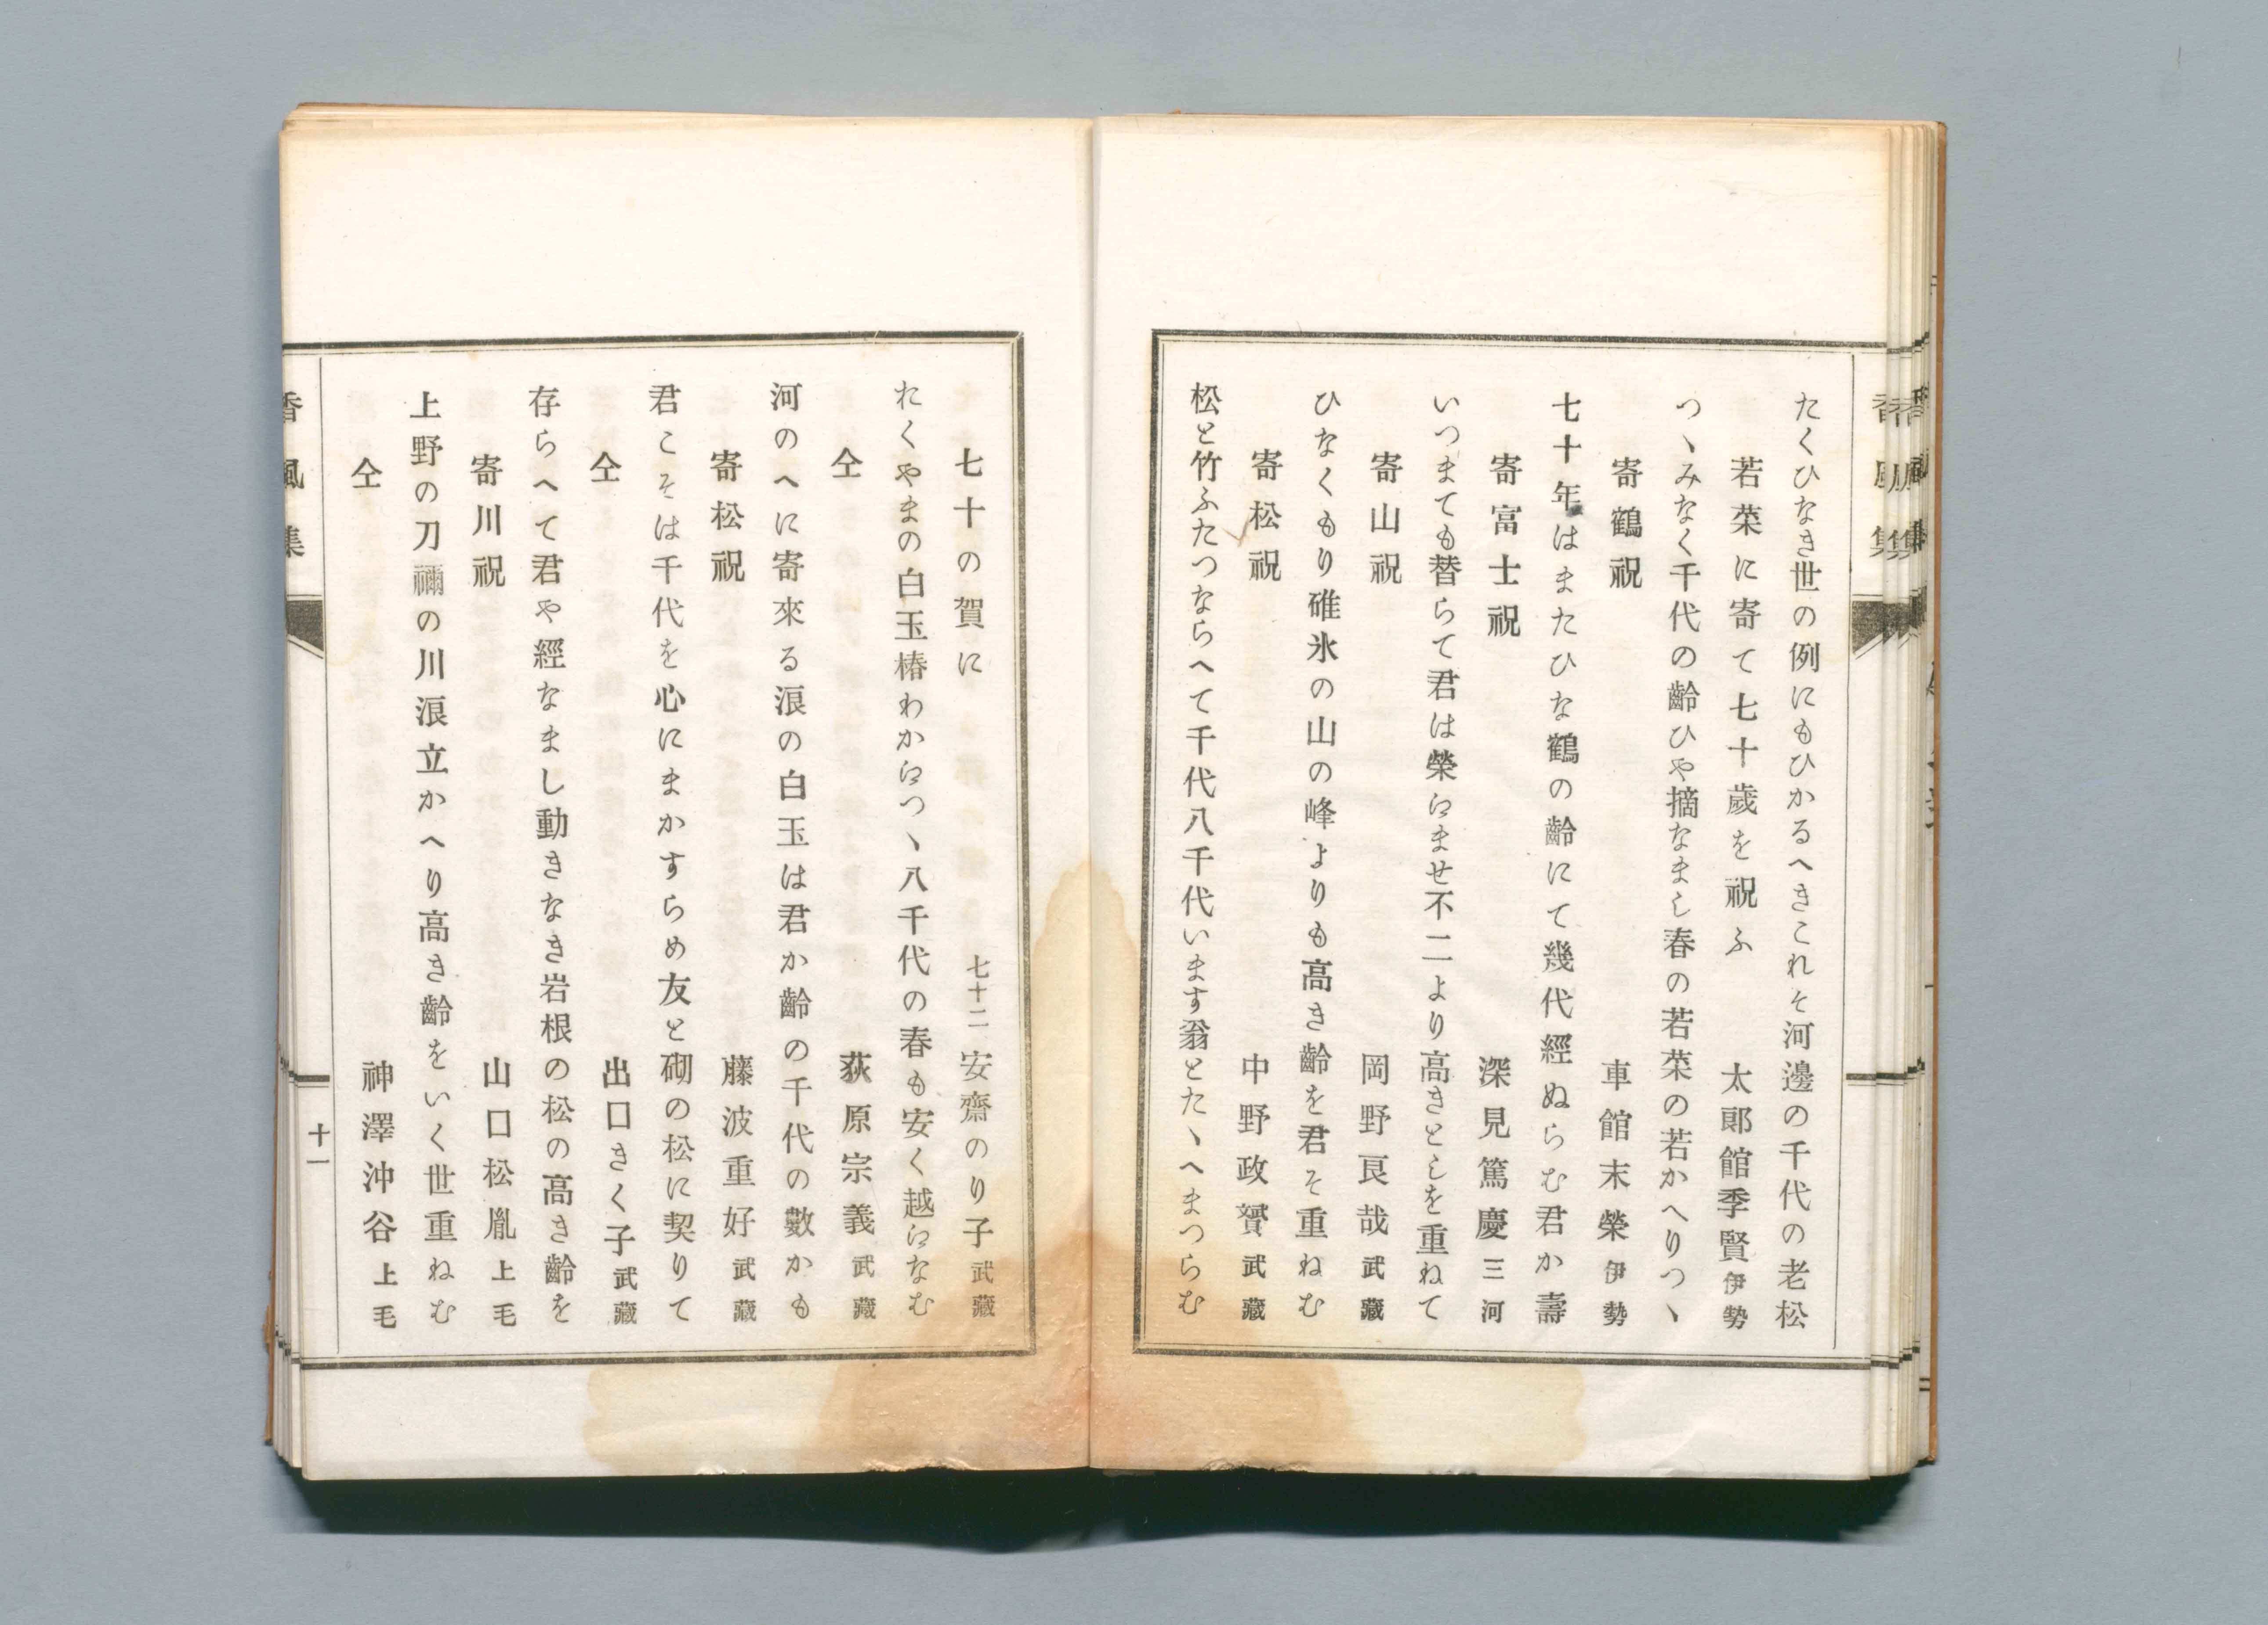 たくひなき世の例にもひかるへきこれそ河邊の千代の老松
若菜に寄て七十歲を祝ふ 太郞館季賢 伊勢
つゝみなく千代の齡ひや摘なまし春の若菜の若かへりつゝ
寄鶴祝 車館末榮 伊勢
七十年はまたひな鶴の齡にて幾代經ぬらむ君か壽
寄富士祝 深見篤慶 三河
いつまても替らて君は榮にませ不二より高きとしを重ねて
寄山祝 岡野良哉 武藏
ひなくもり碓氷の山の峰よりも高き齡を君そ重ねむ
寄松祝 中野政贇 武藏
松と竹ふたつならへて千代八千代います翁とたゝへまつらむ
七十の賀に 七十二 安齋のり子 武藏
れくやまの白玉椿わかにつゝ八千代の春も安く越になむ
仝 荻原宗義 武藏
河のへに寄來る浪の白玉は君か齡の千代の數かも
寄松祝 藤波重好 武藏
君こそは千代を心にまかすらめ友と砌の松に契りて
仝 出口きく子 武藏
存らへて君や經なまし動きなき岩根の松の高き齡を
寄川祝 山口松胤 上毛
上野の刀禰の川浪立かへり高き齡をいく世重ねむ
仝 神澤沖谷 上毛
香風集
十一